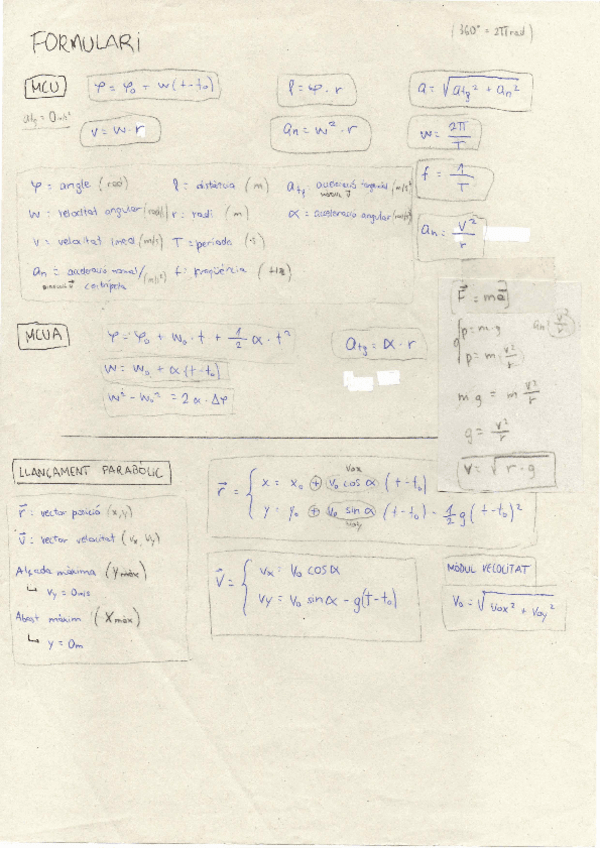 FORMULARI
(360° = 2π rad)
MCU
φ = φ₀ + w(t-t₀)
l = φ · r
a = √(atg² + an²)
atg = 0 m/s²
v = w · r
an = w² · r
w = 2π/T
f = 1/T
an = v²/r
φ = angle (rad)
l = distància (m)
atg acceleració tangencial (m/s²)
w = velocitat angular (rad/s)
r = radi (m)
α = acceleració angular (rad/s²)
v = velocitat lineal (m/s)
T = període (s)
an = acceleració normal/ (m/s²)
centrípeta
f = freqüència (Hz)
F⃗ = ma⃗
p = m · g
an = v²/r
p = m · v²/r
m g = m v²/r
g = v²/r
v = √(r · g)
MCUA
φ = φ₀ + w₀ · t + 1/2 α · t²
atg = α · r
w = w₀ + α(t-t₀)
w² - w₀² = 2α · Δφ
LLANÇAMENT PARABÒLIC
r⃗: vector posició (x,y)
v⃗: vector velocitat (vx, vy)
Alçada màxima (Ymàx)
↳ vy = 0 m/s
Abast màxim (Xmàx)
↳ y = 0m
vox
r⃗ = { x = x₀ + v₀ cos α (t-t₀)
y = y₀ + v₀ sin α (t-t₀) - 1/2 g(t-t₀)²
voy
v⃗ = { vx = v₀ cos α
vy = v₀ sin α - g(t-t₀)
MÒDUL VELOCITAT
v₀ = √(vox² + voy²)